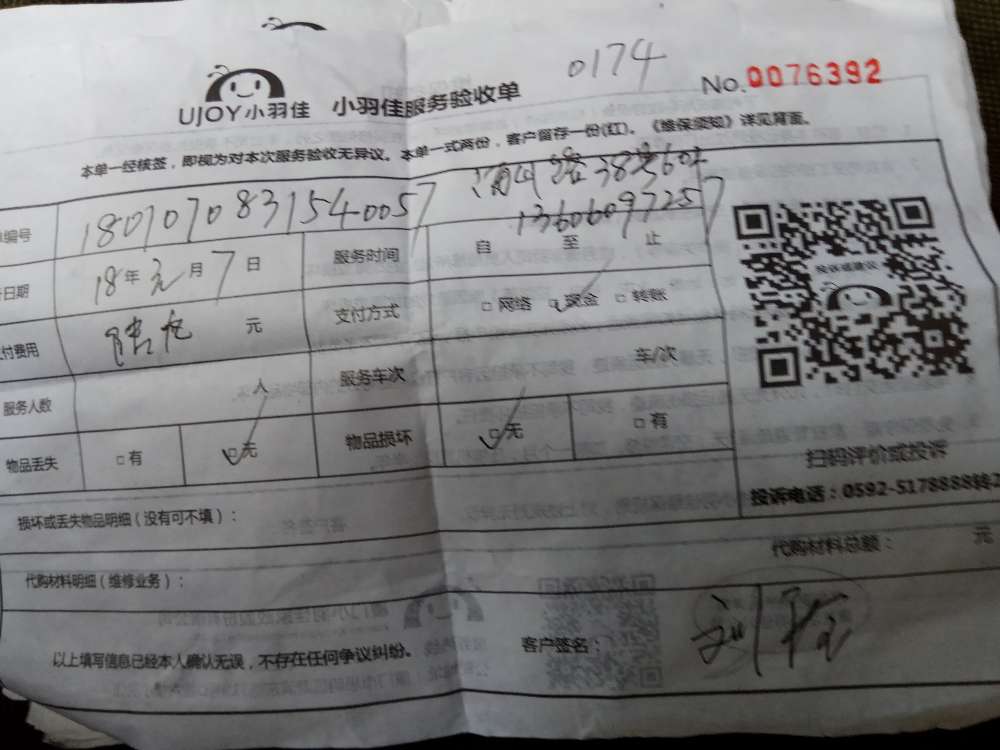 0174
UJOY小羽佳 小羽佳服务验收单 No.0076392
本单一经核签,即视为对本次服务验收无异议。本单一式两份,客户留存一份(红)。《维保须知》详见背面。
单编号 1801070831540057 路38号604
13606097257
日期 18年元月7日 服务时间 自 至 止
付费用 元 支付方式 □网络 □现金 □转账
服务人数 人 服务车次 车/次
物品丢失 □有 □无 物品损坏 □无 □有
投诉或建议
扫码评价或投诉
投诉电话:0592-5178888转
损坏或丢失物品明细(没有可不填):
代购材料明细(维修业务): 代购材料总额: 元
以上填写信息已经本人确认无误,不存在任何争议纠纷。 客户签名:刘